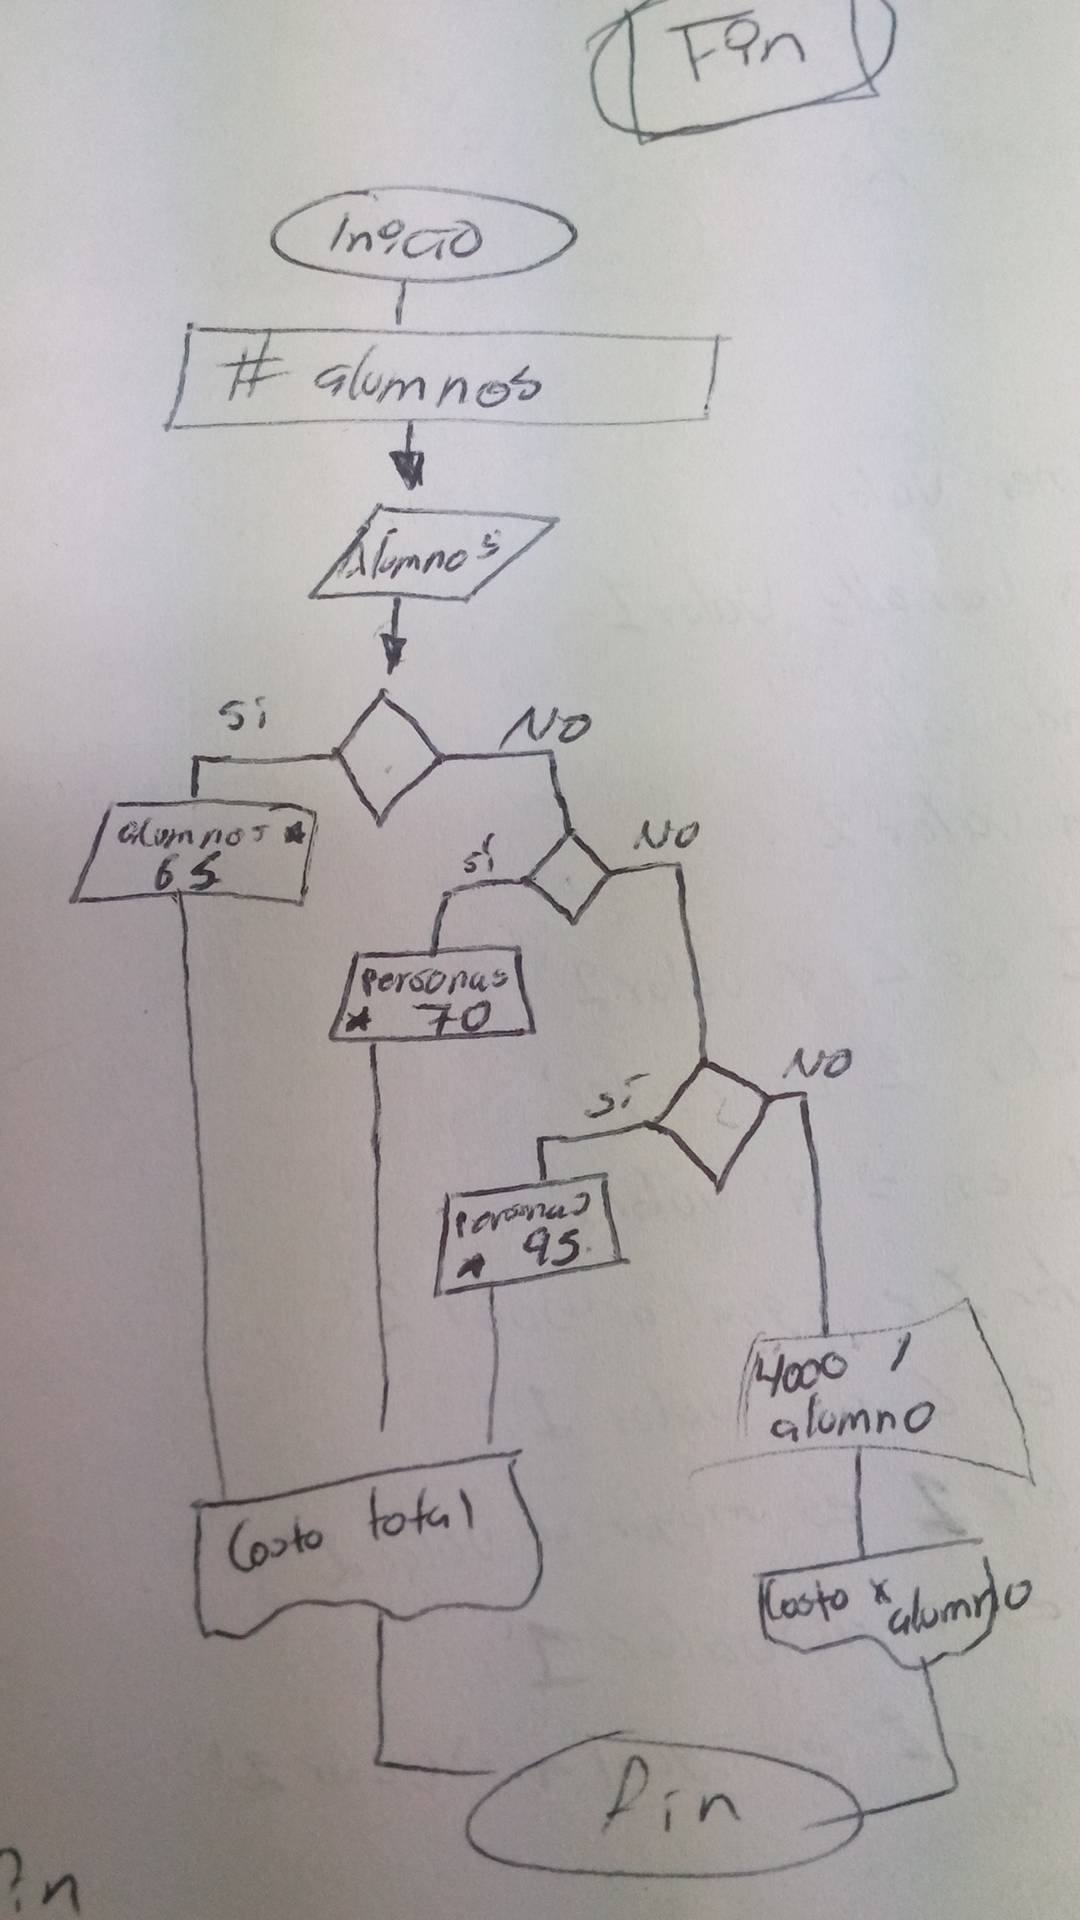 Fin
Inicio
# alumnos
Alumnos
Si
NO
alumnos *
65
si
NO
personas
* 70
si
NO
personas
* 95
4000 /
alumno
Costo total
Costo * alumno
Fin
in